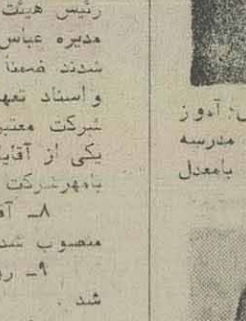 رئیس هیئت
مدیره عباس
شدند ضمناً
و اسناد تعهد
شرکت معتبر
یکی از آقایا
بامهرشرکت
۸ـ آق
منصوب شد
۹ـ رو
شد .
آموز
مدرسه
بامعدل